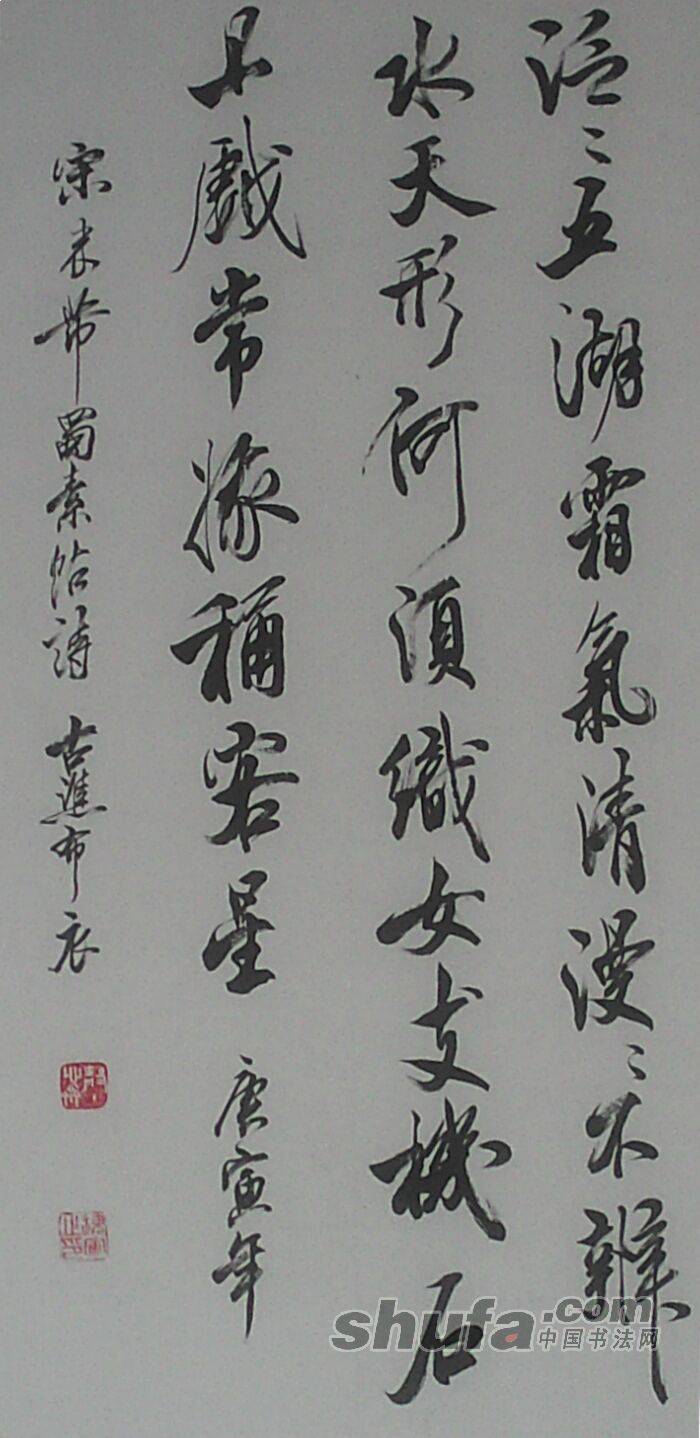 泛〻五湖霜氣清漫〻不辨
水天形何須織女支機石
且戲常娥稱客星 庚寅年
宋米芾蜀素帖詩 古譙布衣
shufa.com
中国书法网